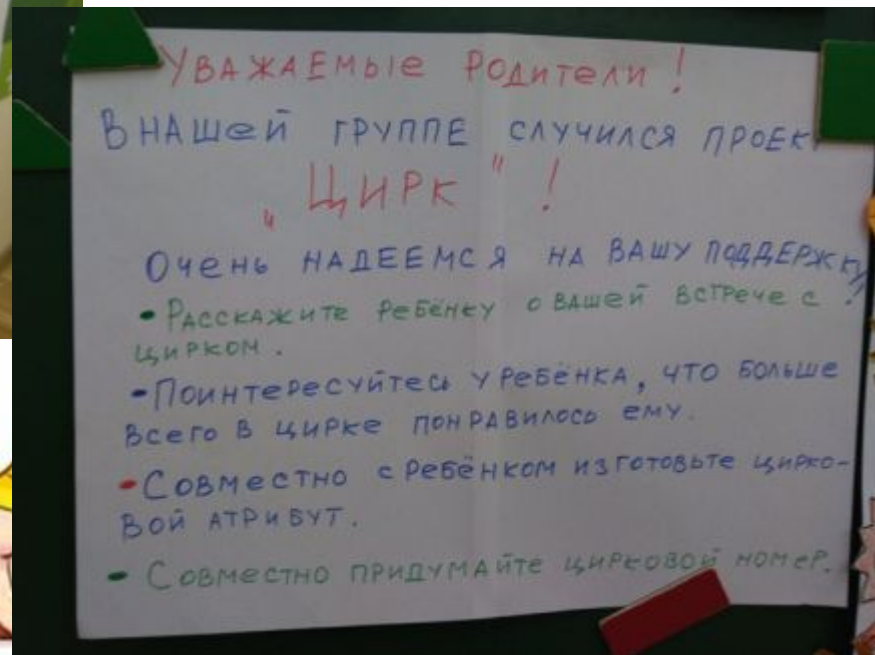 Уважаемые родители!
В нашей группе случился проек
„Цирк"!
Очень надеемся на вашу поддержку!
• Расскажите ребёнку о вашей встрече с
цирком.
- Поинтересуйтесь у ребёнка, что больше
всего в цирке понравилось ему.
• Совместно с ребёнком изготовьте цирко-
вой атрибут.
• Совместно придумайте цирковой номер.